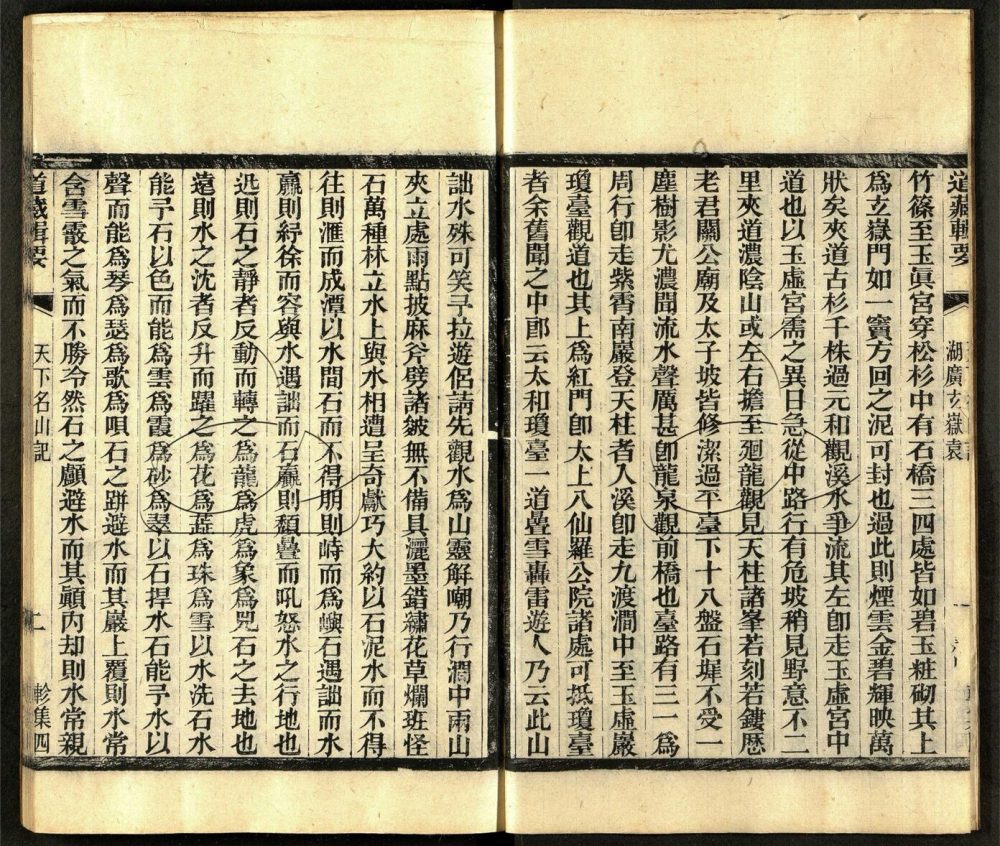 道藏輯要
湖廣玄嶽袁
竹篠至玉眞宮穿松杉中有石橋三四處皆如碧玉粧砌其上
爲玄嶽門如一竇方回之泥可封也過此則煙雲金碧輝映萬
狀矣夾道古杉千株過元和觀溪水爭流其左卽走玉虛宮中
道也以玉虛宮需之異日急從中路行有危坡稍見野意不二
里夾道濃陰山或左右擔至廻龍觀見天柱諸峯若刻若鏤歷
老君關公廟及太子坡皆修潔過平臺下十八盤石墀不受一
塵樹影尤濃聞流水聲厲甚卽龍泉觀前橋也臺路有三一爲
周行卽走紫霄南巖登天柱者入溪卽走九渡澗中至玉虛巖
瓊臺觀道也其上爲紅門卽太上八仙羅公院諸處可抵瓊臺
者余舊聞之中郎云太和瓊臺一道疊雪轟雷遊人乃云此山
詘水殊可笑予拉遊侶請先觀水爲山靈解嘲乃行澗中兩山
夾立處雨點披麻斧劈諸皴無不備具灑墨錯繡花草爛班怪
石萬種林立水上與水相遭呈奇獻巧大約以石泥水而不得
往則滙而成潭以水間石而不得朋則峙而爲嶼石遇詘而水
贏則紆徐而容與水遇詘而石贏則頹疊而吼怒水之行地也
迅則石之靜者反動而轉之爲龍爲虎爲象爲兕石之去地也
遠則水之沈者反升而躍之爲花爲蕋爲珠爲雪以水洗石水
能予石以色而能爲雲爲霞爲砂爲翠以石捍水石能予水以
聲而能爲琴爲瑟爲歌爲唄石之跰避水而其巖上覆則水常
含雪霰之氣而不勝冷然石之顱避水而其顚內却則水常親
道藏輯要
天下名山記
軫集四